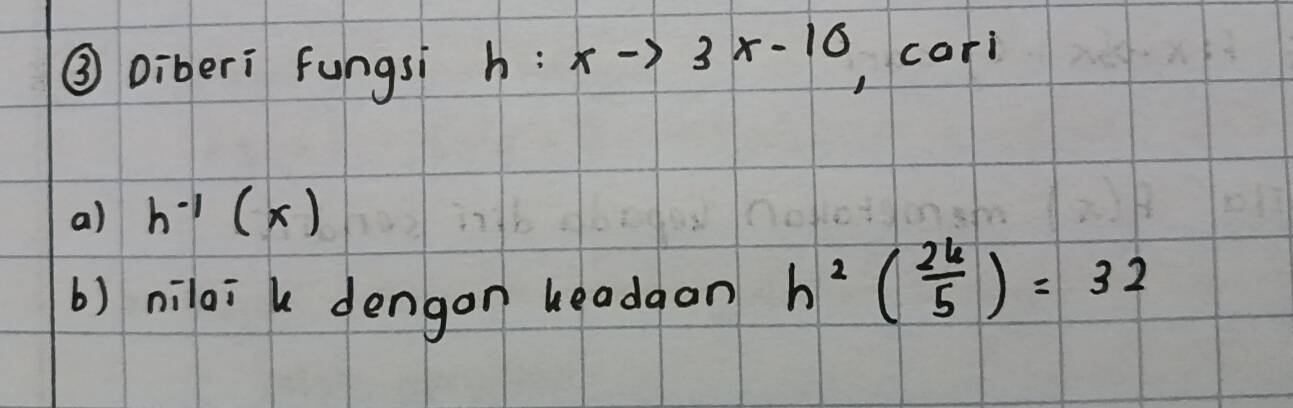 ③ Diberi fungsi h : x -> 3x - 10, cari
a) h⁻¹ (x)
b) nilai k dengan keadaan h² (2k/5) = 32